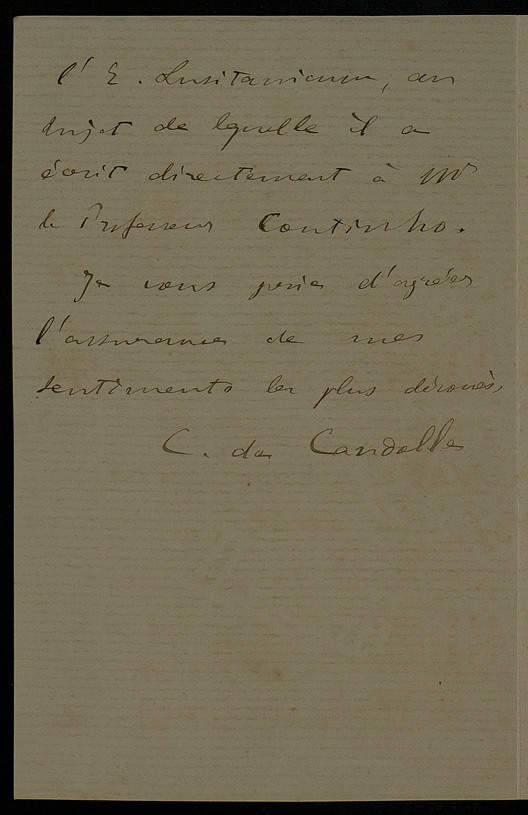 l'E. Lusitanicum, au
sujet de laquelle il a
écrit directement à Mr
le Professeur Coutinho.
Je vous prie d'agréer
l'assurance de mes
sentiments les plus dévoués,
C. de Candolle